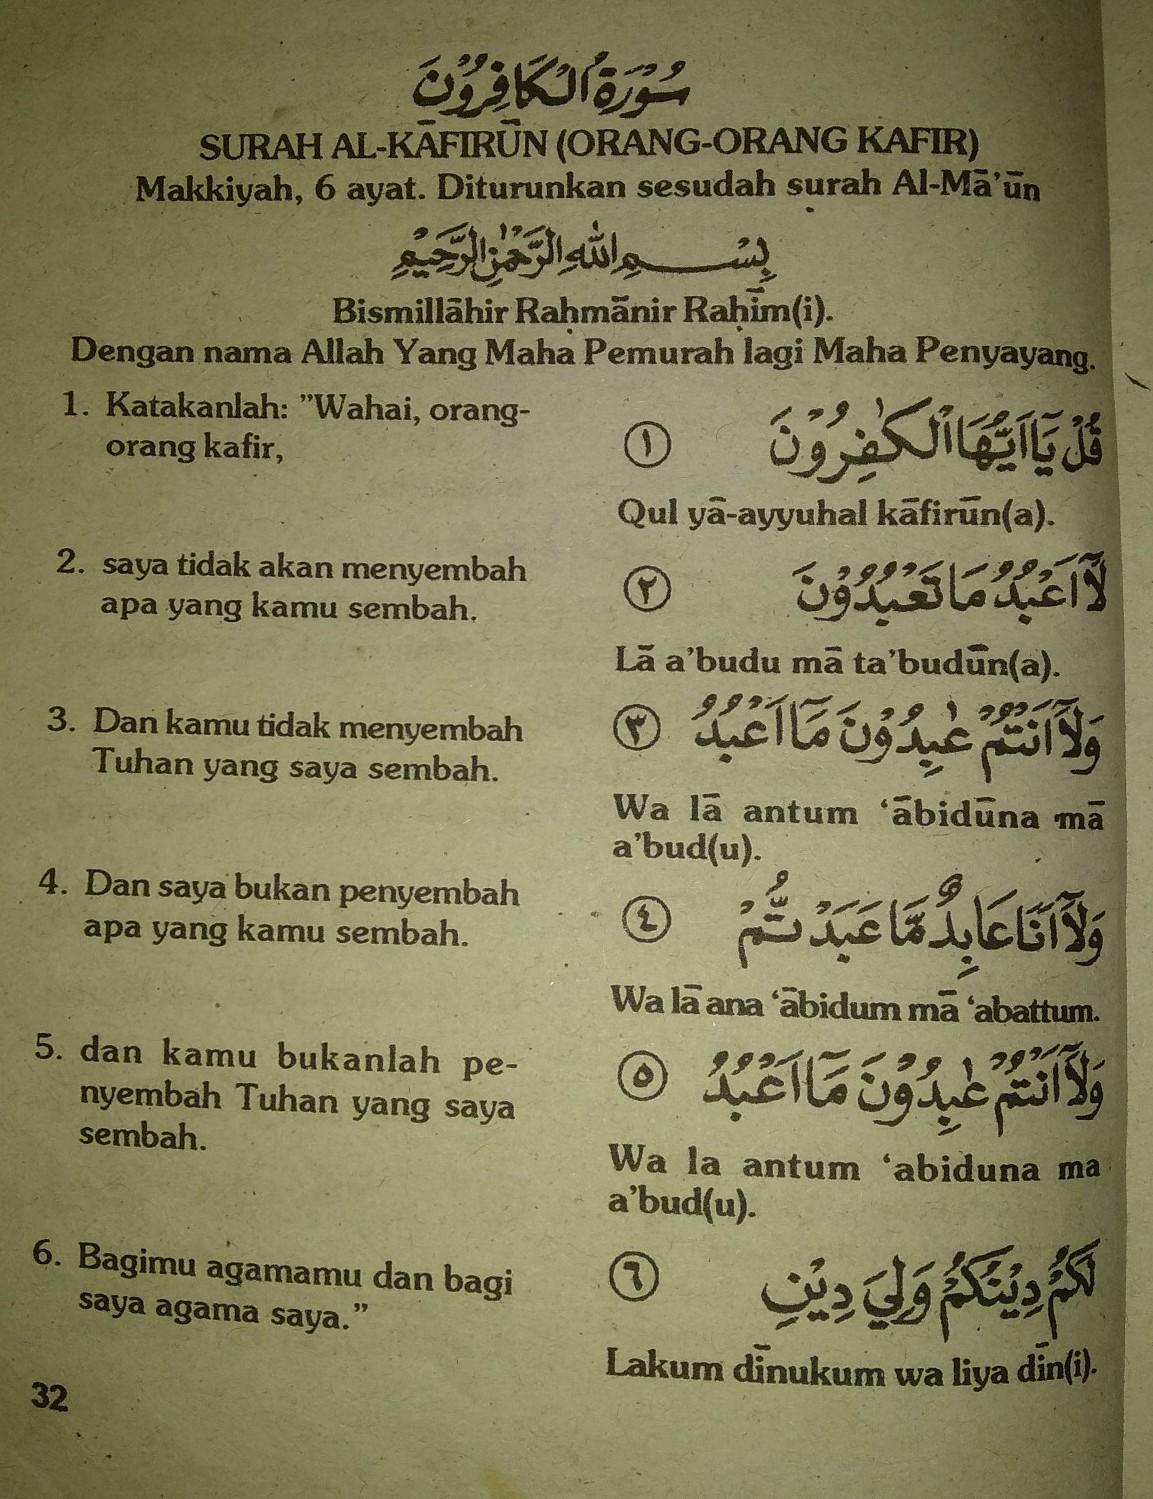 سُوْرَةُ الْكَافِرُوْنَ
SURAH AL-KĀFIRŪN (ORANG-ORANG KAFIR)
Makkiyah, 6 ayat. Diturunkan sesudah surah Al-Mā’ūn
بِسْمِ اللّٰهِ الرَّحْمٰنِ الرَّحِيْمِ
Bismillāhir Raḥmānir Raḥīm(i).
Dengan nama Allah Yang Maha Pemurah lagi Maha Penyayang.
1. Katakanlah: ”Wahai, orang-
orang kafir,
قُلْ يَآ اَيُّهَا الْكٰفِرُوْنَ ١
Qul yā-ayyuhal kāfirūn(a).
2. saya tidak akan menyembah
apa yang kamu sembah.
لَآ اَعْبُدُ مَا تَعْبُدُوْنَ ٢
Lā a’budu mā ta’budūn(a).
3. Dan kamu tidak menyembah
Tuhan yang saya sembah.
وَلَآ اَنْتُمْ عٰبِدُوْنَ مَآ اَعْبُدُ ٣
Wa lā antum ‘ābidūna mā
a’bud(u).
4. Dan saya bukan penyembah
apa yang kamu sembah.
وَلَآ اَنَا عَابِدٌ مَّا عَبَدْتُّمْ ٤
Wa lā ana ‘ābidum mā ‘abattum.
5. dan kamu bukanlah pe-
nyembah Tuhan yang saya
sembah.
وَلَآ اَنْتُمْ عٰبِدُوْنَ مَآ اَعْبُدُ ٥
Wa la antum ‘abiduna ma
a’bud(u).
6. Bagimu agamamu dan bagi
saya agama saya.”
لَكُمْ دِيْنُكُمْ وَلِيَ دِيْنِ ٦
Lakum dīnukum wa liya dīn(i).
32